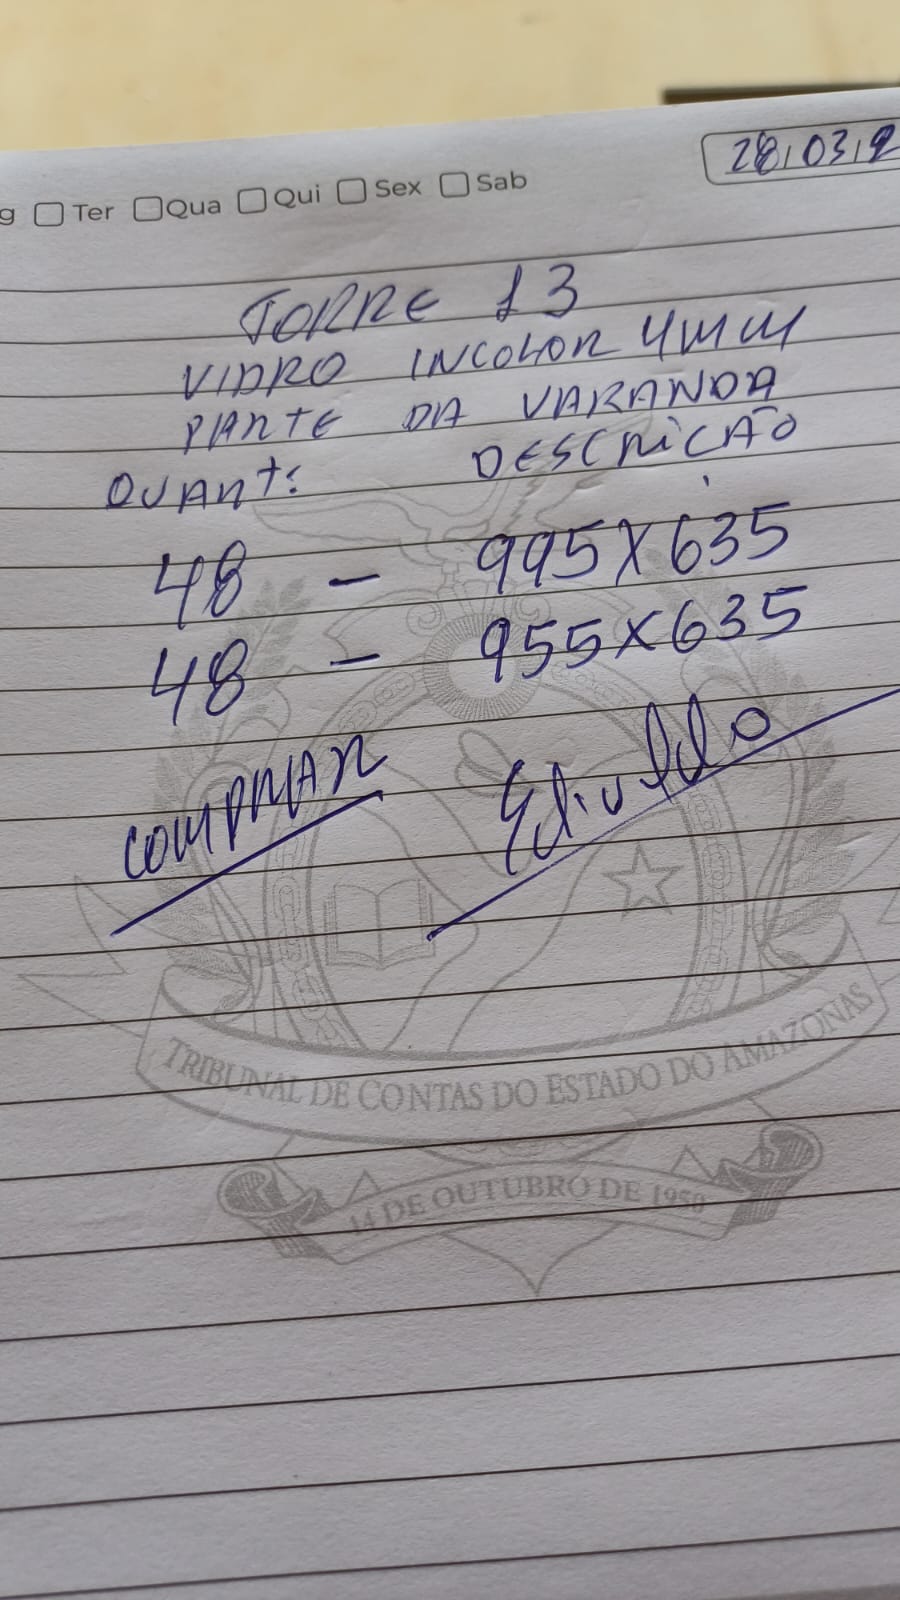 28/03/2
g Ter Qua Qui Sex Sab
TORRE 13
VIDRO INCOLOR 4MM
PARTE DA VARANDA
QUANT: DESCRIÇÃO
48 - 995X635
48 - 955X635
COMPRAR Edivaldo
TRIBUNAL DE CONTAS DO ESTADO DO AMAZONAS
14 DE OUTUBRO DE 1950